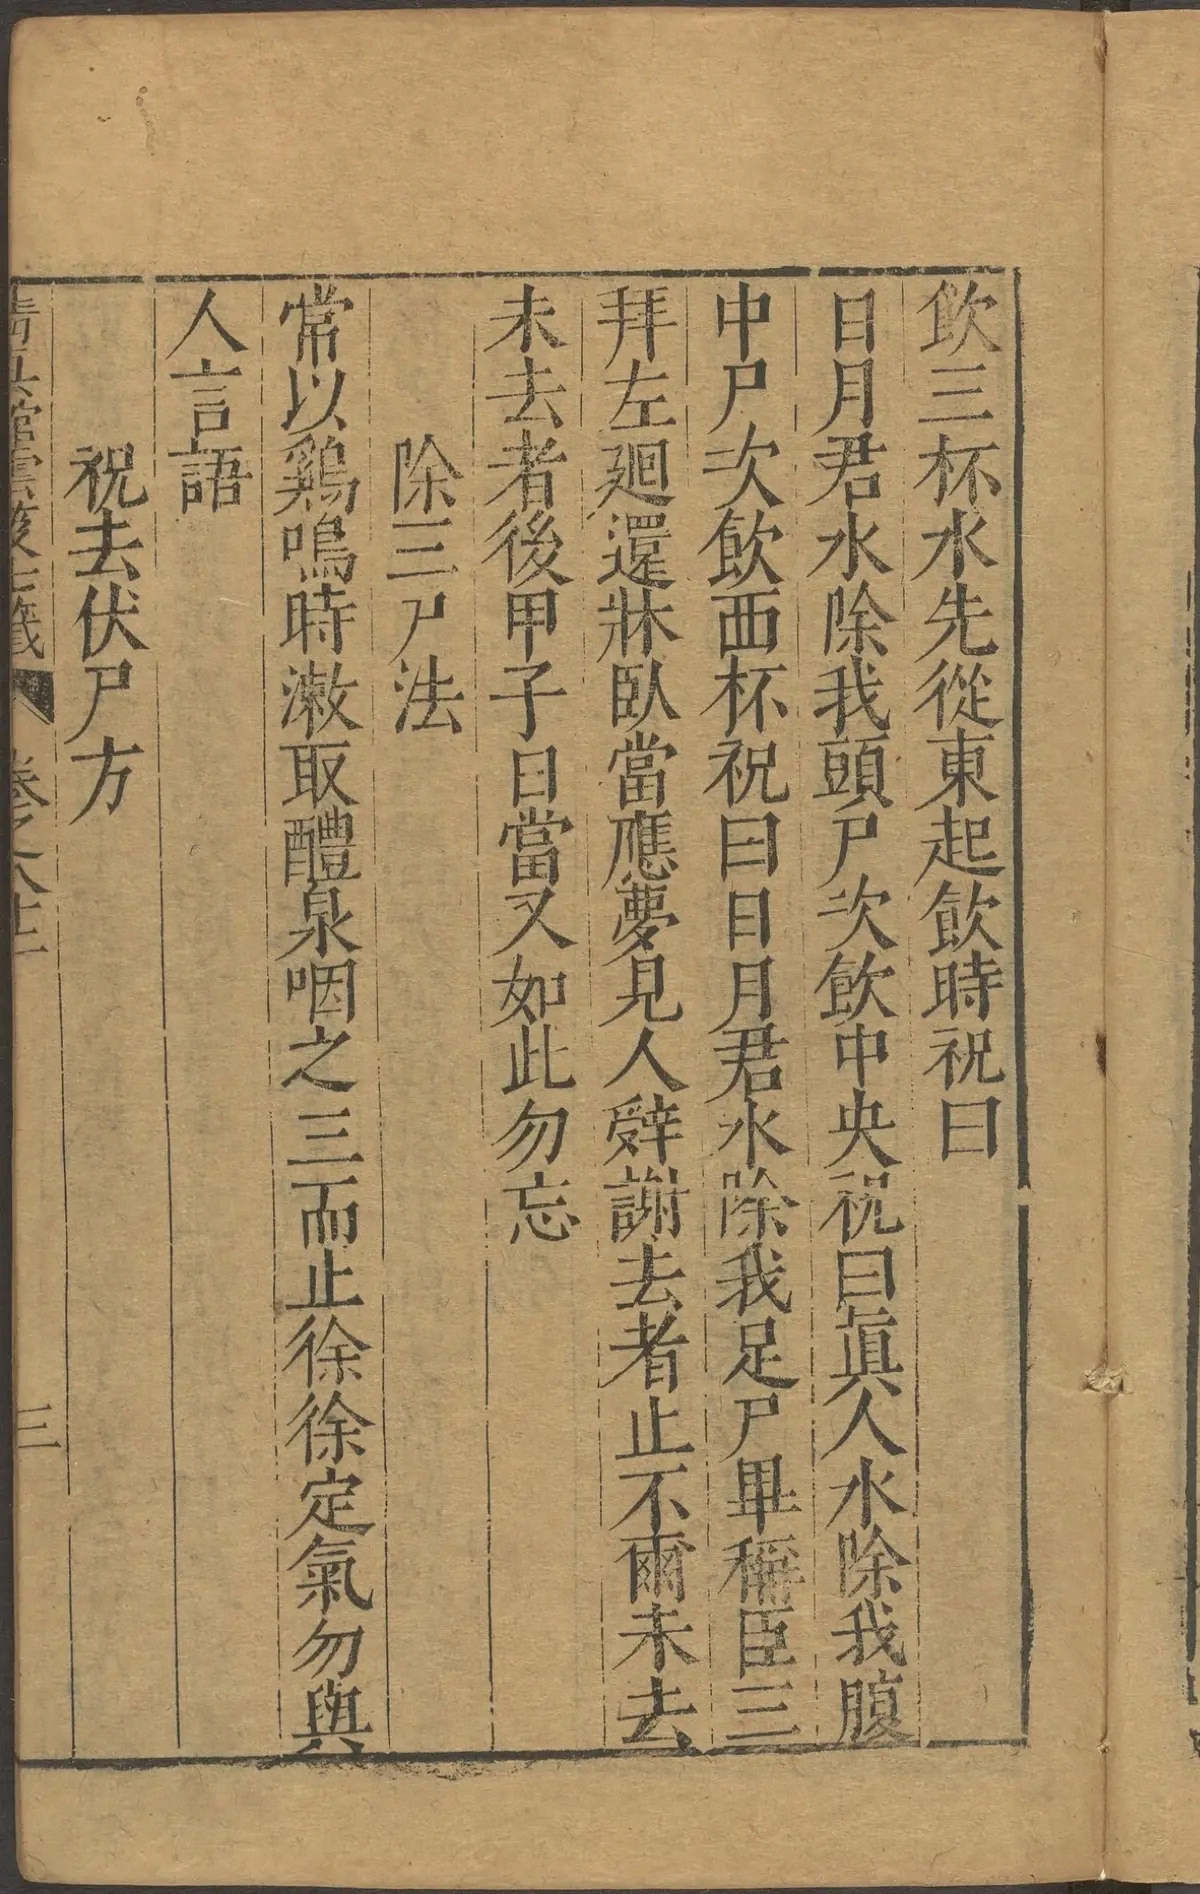 飲三杯水先從東起飲時祝曰
日月君水除我頭尸次飲中央祝曰眞人水除我腹
中尸次飲西杯祝曰日月君水除我足尸畢稱臣三
拜左廻還牀臥當應夢見人辤謝去者止不爾未去
未去者後甲子日當又如此勿忘
除三尸法
常以鷄鳴時漱取醴泉咽之三而止徐徐定氣勿與
人言語
祝去伏尸方
雲笈七籤 卷之八十二 三